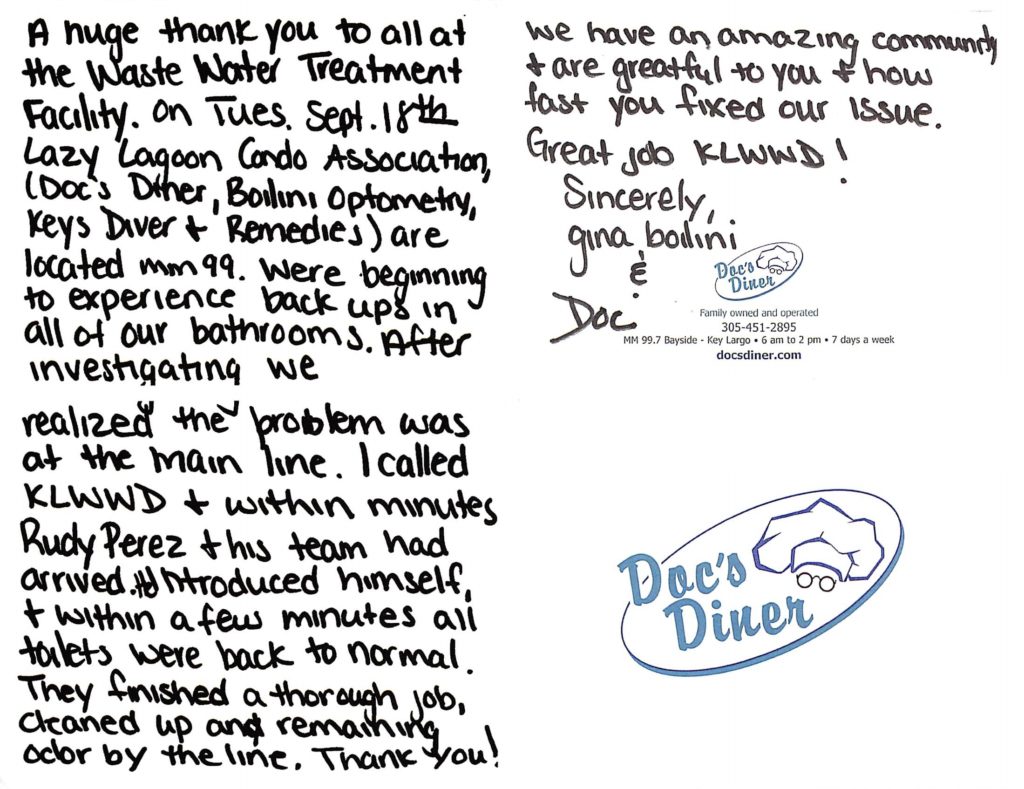 A huge thank you to all at
the Waste Water Treatment
Facility. On Tues. Sept. 18th
Lazy Lagoon Condo Association,
(Doc's Diner, Boilini Optometry,
Keys Diver & Remedies) are
located mm 99. Were beginning
to experience back ups in
all of our bathrooms. After
investigating we
realized the problem was
at the main line. I called
KLWWD & within minutes
Rudy Perez & his team had
arrived. Introduced himself,
& within a few minutes all
toilets were back to normal.
They finished a thorough job,
cleaned up and remaining
odor by the line. Thank you!
We have an amazing community
& are greatful to you & how
fast you fixed our issue.
Great job KLWWD!
Sincerely,
gina boilini
&
Doc
Doc's
Diner
Family owned and operated
305-451-2895
MM 99.7 Bayside - Key Largo • 6 am to 2 pm • 7 days a week
docsdiner.com
Doc's
Diner